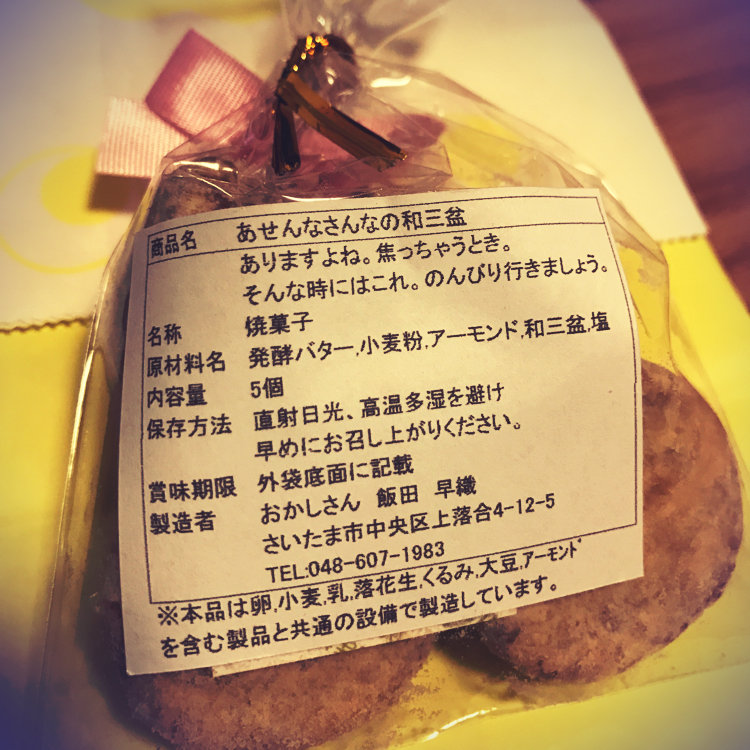 商品名 あせんなさんなの和三盆
ありますよね。焦っちゃうとき。
そんな時にはこれ。のんびり行きましょう。
名称 焼菓子
原材料名 発酵バター,小麦粉,アーモンド,和三盆,塩
内容量 5個
保存方法 直射日光、高温多湿を避け
早めにお召し上がりください。
賞味期限 外袋底面に記載
製造者 おかしさん 飯田 早織
さいたま市中央区上落合4-12-5
TEL:048-607-1983
※本品は卵,小麦,乳,落花生,くるみ,大豆,アーモンド
を含む製品と共通の設備で製造しています。